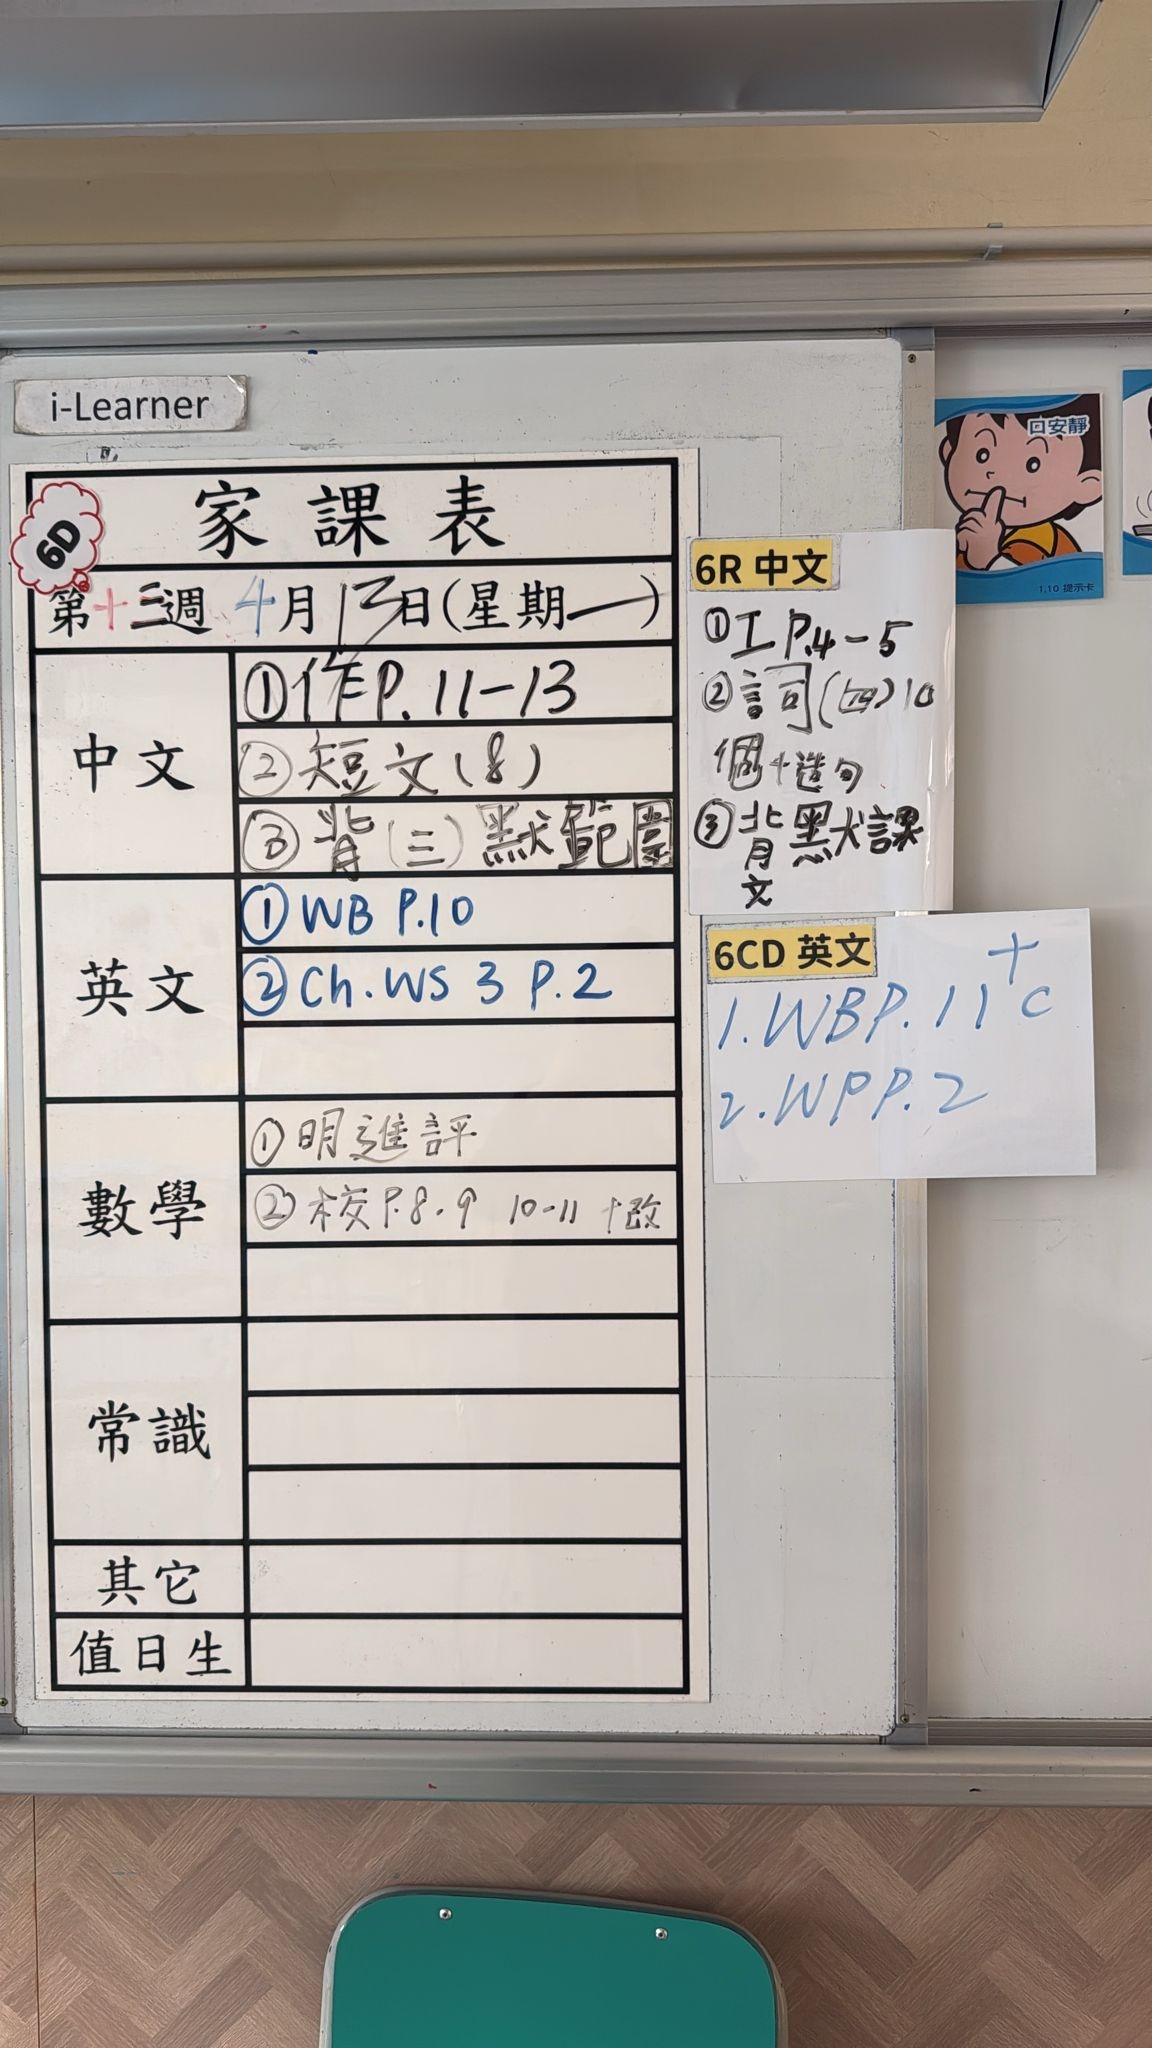 i-Learner
6D
家課表
第十三週 4月13日(星期一)
中文
①作P.11-13
②短文(8)
③背(三)默範圍
英文
①WB P.10
②Ch.WS 3 P.2
數學
①明進評
②校P.8.9 10-11 +改
常識
其它
值日生
6R 中文
①工P.4-5
②詞(四)10
個+造句
③背默課
文
6CD 英文
1.WBP.11+c
2.WPP.2
口安靜
1.10 提示卡